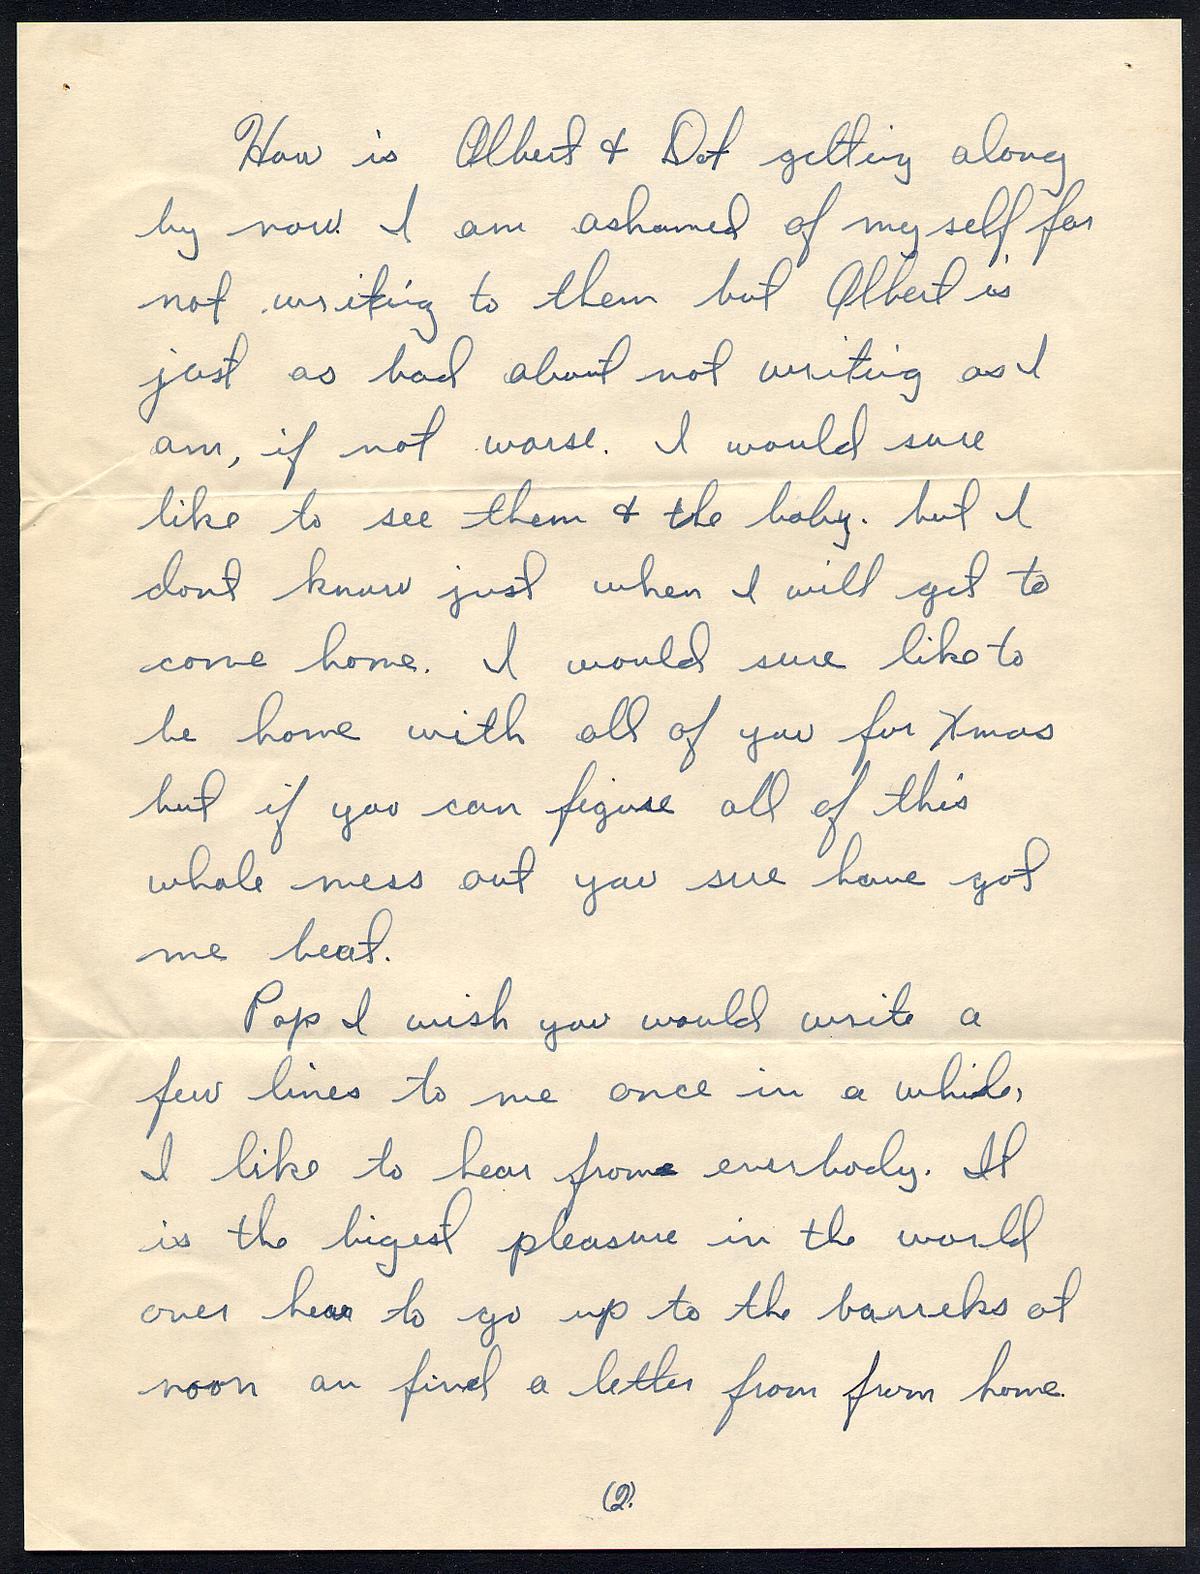 How is Albert & Dot getting along
by now. I am ashamed of my self for
not writing to them but Albert is
just as bad about not writing as I
am, if not worse. I would sure
like to see them & the baby. but I
dont know just when I will get to
come home. I would sure like to
be home with all of you for Xmas
but if you can figure all of this
whole mess out you sure have got
me beat.
Pop I wish you would write a
few lines to me once in a while,
I like to hear from everbody. It
is the bigest pleasure in the world
over hear to go up to the barreks at
noon an find a letter from from home.
(2)